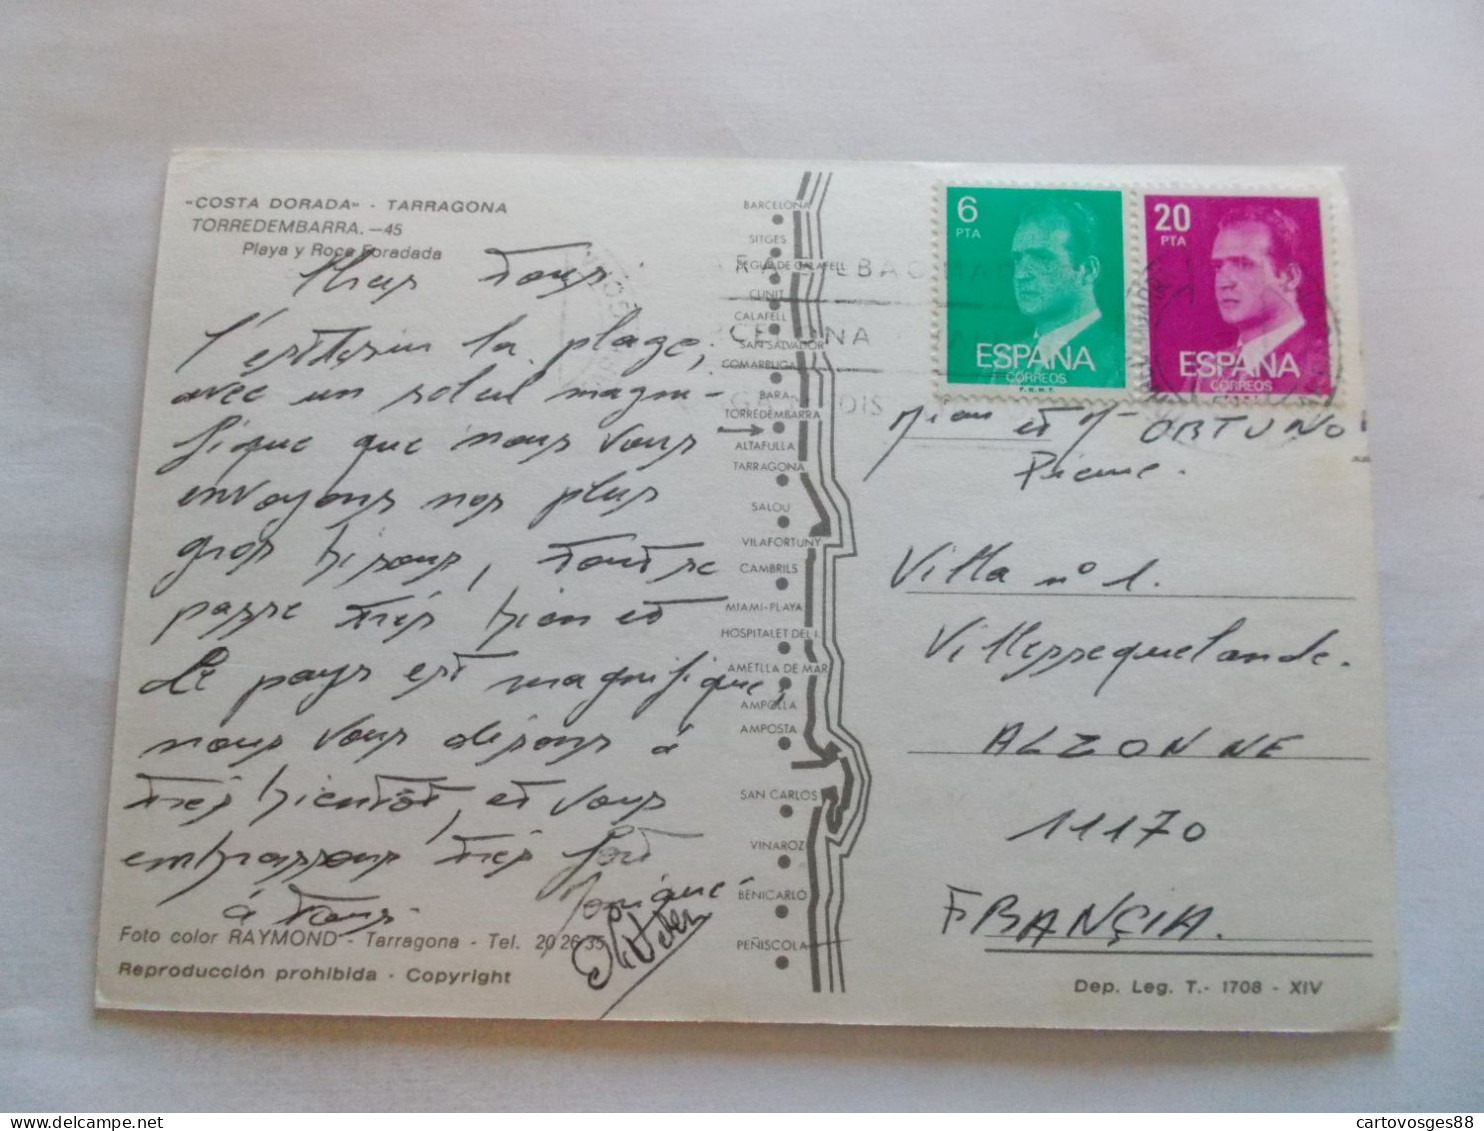 «COSTA DORADA» - TARRAGONA
TORREDEMBARRA.—45
Playa y Roca Foradada
Chers Tous.
C'est assis sur la plage,
avec un soleil magni-
fique que nous vous
envoyons nos plus
gros bisous, tout se
passe très bien et
le pays est magnifique,
nous vous disons à
très bientôt, et vous
embrassons très fort
à tous.
Monique
Foto color RAYMOND - Tarragona - Tel. 20 26 35
Reproducción prohibida - Copyright
BARCELONA
SITGES
SEGUR DE CALAFELL
CUNIT
CALAFELL
SAN SALVADOR
COMARRUGA
BARA
TORREDEMBARRA
ALTAFULLA
TARRAGONA
SALOU
VILAFORTUNY
CAMBRILS
MIAMI-PLAYA
HOSPITALET DEL I.
AMETLLA DE MAR
AMPOLLA
AMPOSTA
SAN CARLOS
VINAROZ
BENICARLO
PEÑISCOLA
6
PTA
ESPAÑA
CORREOS
F.N.M.T.
20
PTA
ESPAÑA
CORREOS
et M. ORTUNO
Pierre.
Villa n° 1.
Villessequelande.
ALZONNE
11170
FRANÇIA.
Dep. Leg. T.- 1708 - XIV
cartovosges88